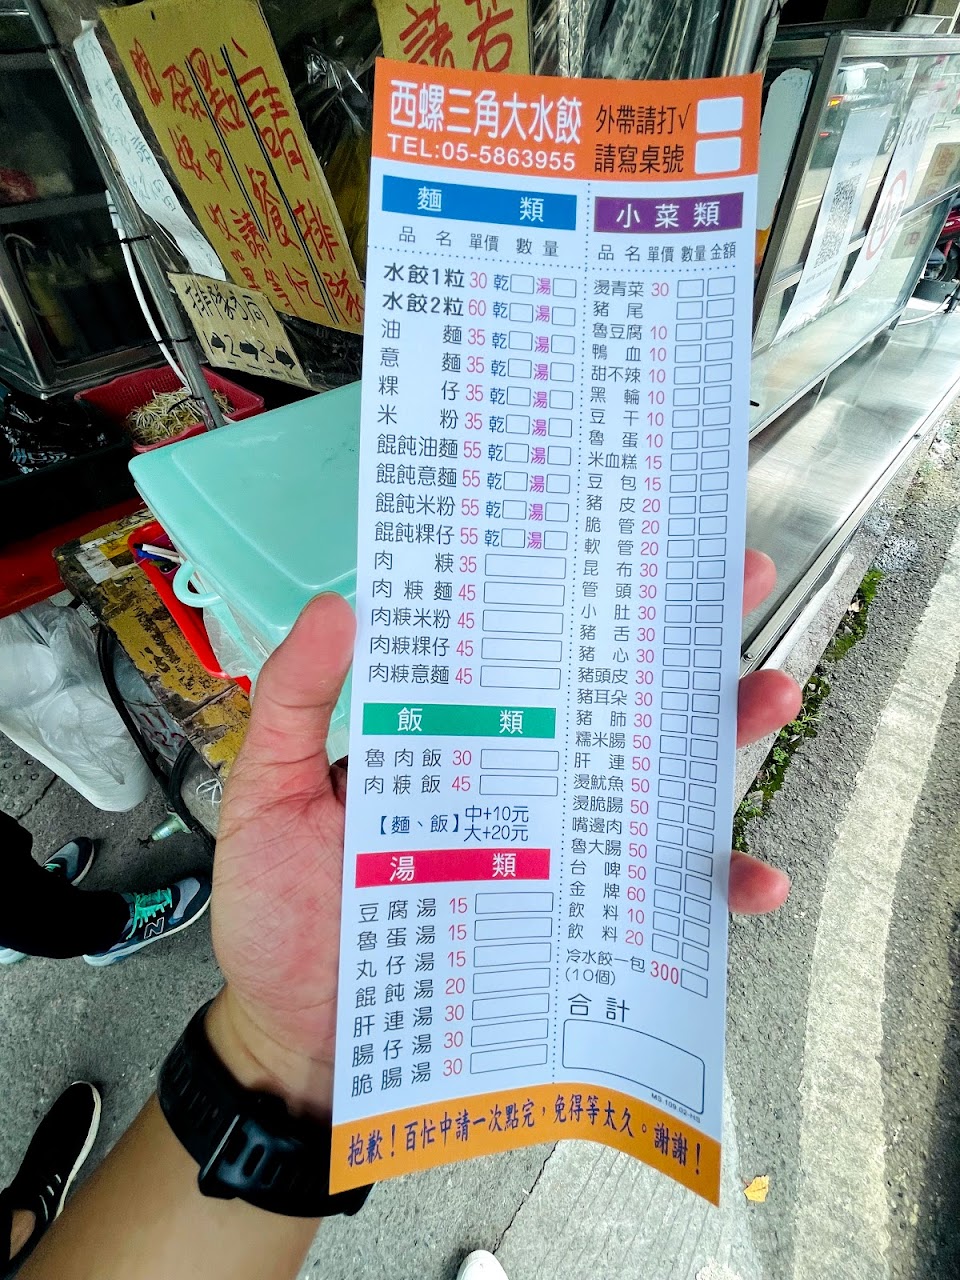 請點餐排隊
請若
排隊3同
→2→3→
西螺三角大水餃
TEL:05-5863955
外帶請打√
請寫桌號
麵 類
品 名 單價 數量
水餃1粒 30 乾 湯
水餃2粒 60 乾 湯
油 麵 35 乾 湯
意 麵 35 乾 湯
粿 仔 35 乾 湯
米 粉 35 乾 湯
餛飩油麵 55 乾 湯
餛飩意麵 55 乾 湯
餛飩米粉 55 乾 湯
餛飩粿仔 55 乾 湯
肉 粳 35
肉粳麵 45
肉粳米粉 45
肉粳粿仔 45
肉粳意麵 45
飯 類
魯肉飯 30
肉粳飯 45
【麵、飯】中+10元
大+20元
湯 類
豆腐湯 15
魯蛋湯 15
丸仔湯 15
餛飩湯 20
肝連湯 30
腸仔湯 30
脆腸湯 30
小菜類
品 名 單價 數量 金額
燙青菜 30
豬 尾
魯豆腐 10
鴨 血 10
甜不辣 10
黑 輪 10
豆 干 10
魯 蛋 10
米血糕 15
豆 包 15
豬 皮 20
脆 管 20
軟 管 20
昆 布 30
管 頭 30
小 肚 30
豬 舌 30
豬 心 30
豬頭皮 30
豬耳朵 30
豬 肺 30
糯米腸 50
肝 連 50
燙魷魚 50
燙脆腸 50
嘴邊肉 50
魯大腸 50
台 啤 50
金 牌 60
飲 料 10
飲 料 20
冷水餃一包 300
(10個)
合計
MS.109.02-HS
抱歉！百忙中請一次點完，免得等太久。謝謝！